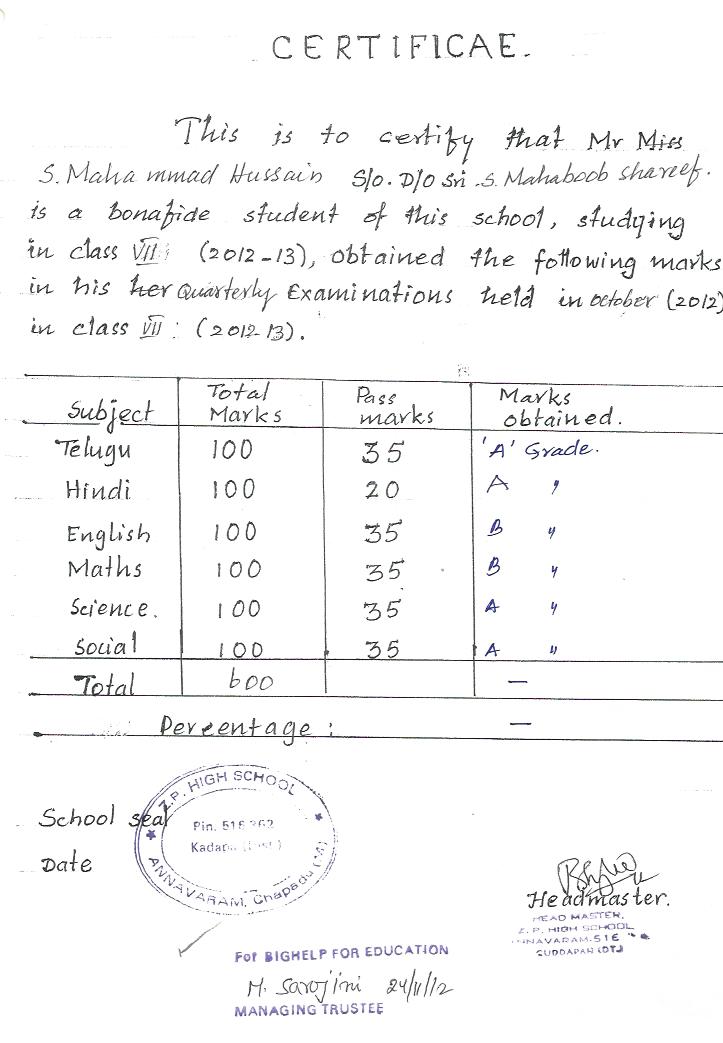 CERTIFICAE.
This is to certify that Mr Miss
S. Mahammad Hussain S/o. D/o Sri. S. Mahaboob shareef.
is a bonafide student of this school, studying
in class VII (2012-13), obtained the following marks
in his her Quarterly Examinations held in october (2012)
in class VII : (2012-13).
Subject Total Marks Pass marks Marks obtained.
Telugu 100 35 'A' Grade.
Hindi 100 20 A "
English 100 35 B "
Maths 100 35 B "
Science. 100 35 A "
Social 100 35 A "
Total 600 —
Percentage : —
School seal
Date
Z.P. HIGH SCHOOL
Pin. 516 362
Kadapa (Dist.)
ANNAVARAM, Chapadu (M)
Headmaster.
HEAD MASTER,
Z. P. HIGH SCHOOL
ANNAVARAM-516
CUDDAPAH (DT)
For BIGHELP FOR EDUCATION
M. Sarojini 24/11/12
MANAGING TRUSTEE